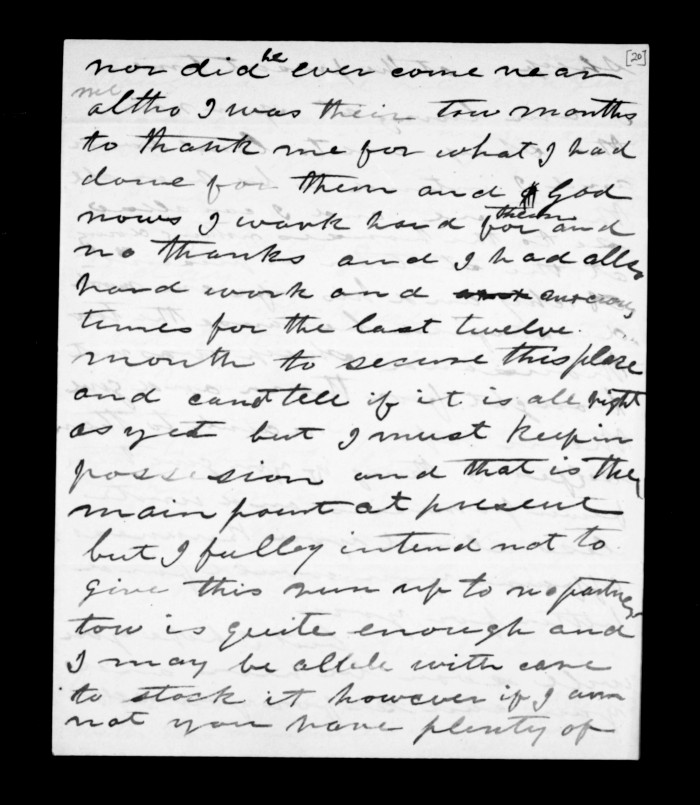 [20]
nor did he ever come near
me
altho I was their tow months
to thank me for what I had
done for them and God
nows I wark hard for them and
no thanks and I had alley
hard work and anxcious
times for the last twelve
month to secure this place
and candt tell if it is all right
as yet but I must keep in
possession and that is they
main point at present
but I fulley intend not to
give this run up to no partners
tow is quite enough and
I may be able with care
to stock it however if I am
not you have plenty of